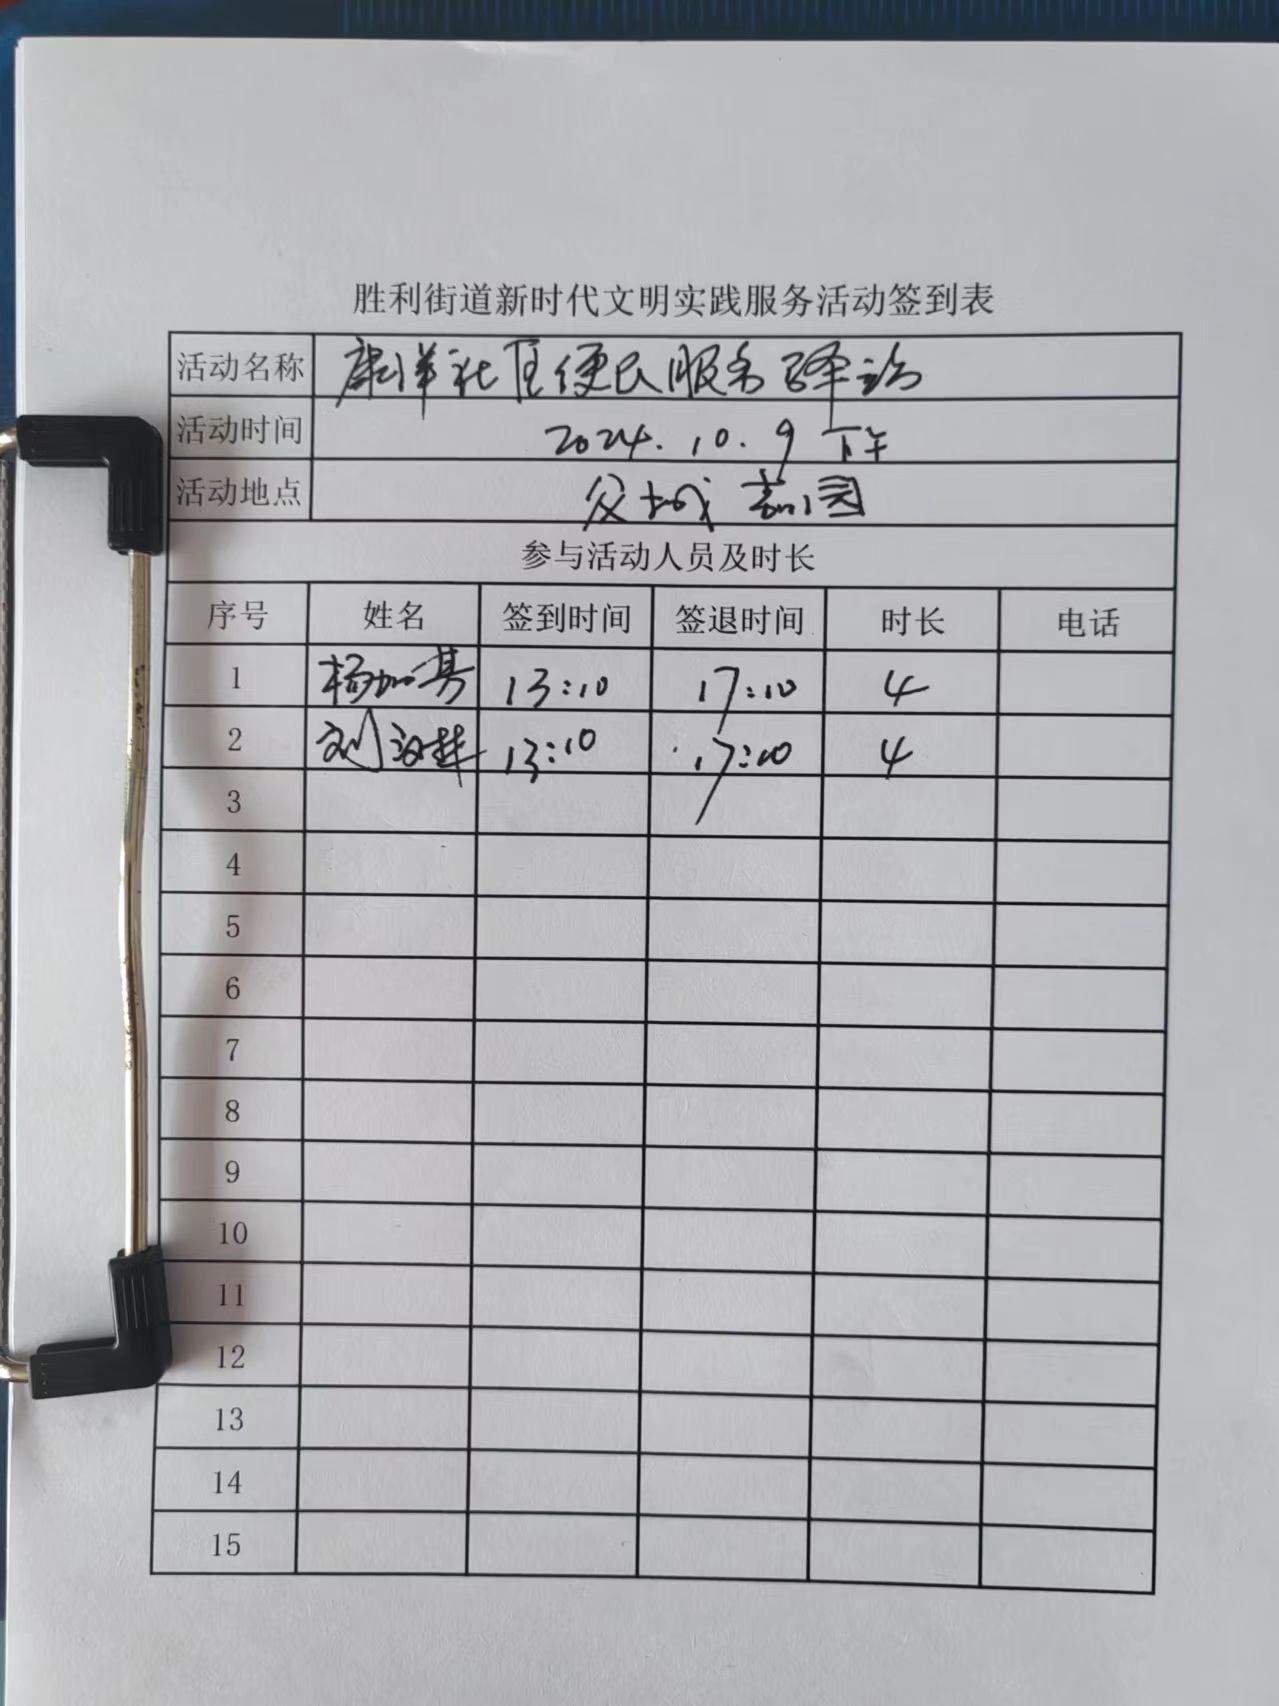 胜利街道新时代文明实践服务活动签到表
活动名称 社区便民服务驿站
活动时间 2024.10.9 下午
活动地点 城嘉园
参与活动人员及时长
序号 姓名 签到时间 签退时间 时长 电话
1 杨加 13:10 17:10 4
2 刘汉 13:10 17:10 4
3
4
5
6
7
8
9
10
11
12
13
14
15